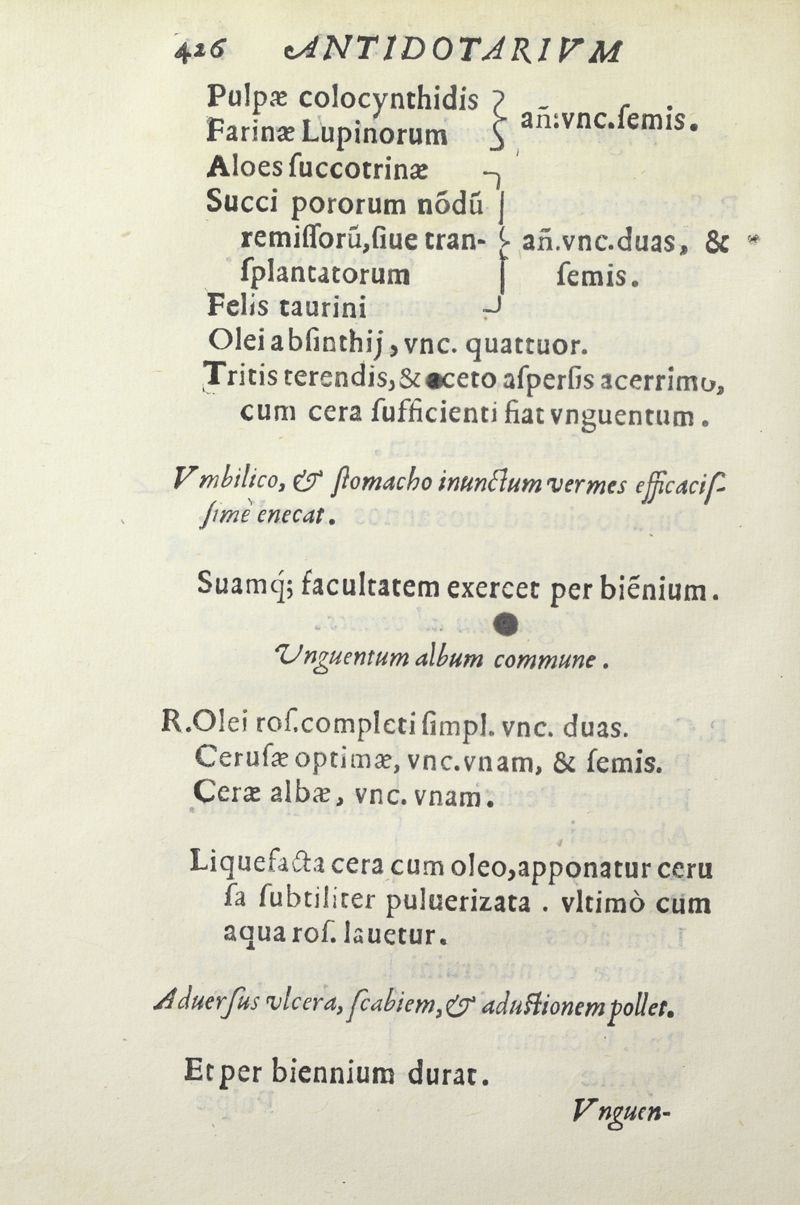 426 ANTIDOTARIVM
Pulpæ colocynthidis
Farinæ Lupinorum añ.vnc.ſemis.
Aloes ſuccotrinæ
Succi pororum nõdũ
remiſſorũ,ſiue tran- añ.vnc.duas, &
ſplantatorum ſemis.
Felis taurini
Olei abſinthij, vnc. quattuor.
Tritis terendis,& aceto aſperſis acerrimo,
cum cera ſufficienti fiat vnguentum.
Vmbilico, & ſtomacho inunctum vermes efficaciſ-
ſimè enecat.
Suamq́; facultatem exercet per biẽnium.
Vnguentum album commune.
R.Olei roſ.completi ſimpl. vnc. duas.
Ceruſæ optimæ, vnc.vnam, & ſemis.
Ceræ albæ, vnc. vnam.
Liquefacta cera cum oleo,apponatur ceru
ſa ſubtiliter puluerizata . vltimò cum
aqua roſ. lauetur.
Aduerſus vlcera, ſcabiem,& aduſtionem pollet.
Et per biennium durat.
Vnguen-